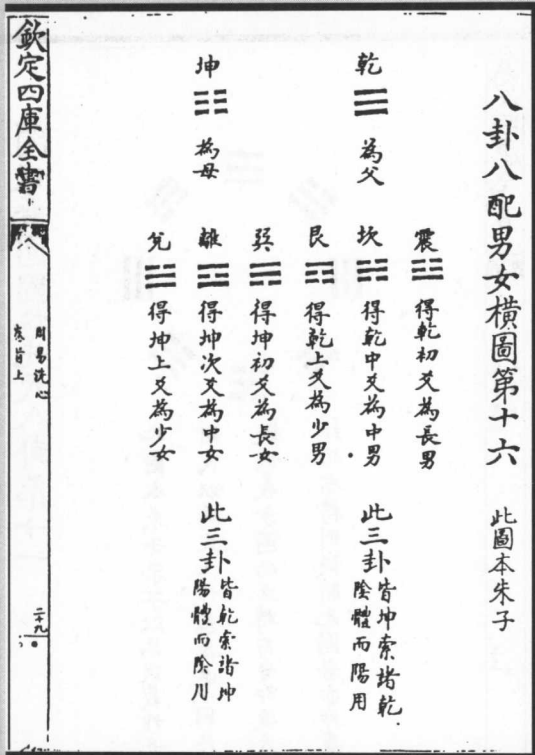 八卦八配男女橫圖第十六
此圖本朱子
乾
為父
震
得乾初爻為長男
坎
得乾中爻為中男
艮
得乾上爻為少男
此三卦
皆坤索諸乾
陰體而陽用
坤
為母
巽
得坤初爻為長女
離
得坤次爻為中女
兌
得坤上爻為少女
此三卦
皆乾索諸坤
陽體而陰用
欽定四庫全書
周易洗心
卷首上
二十九